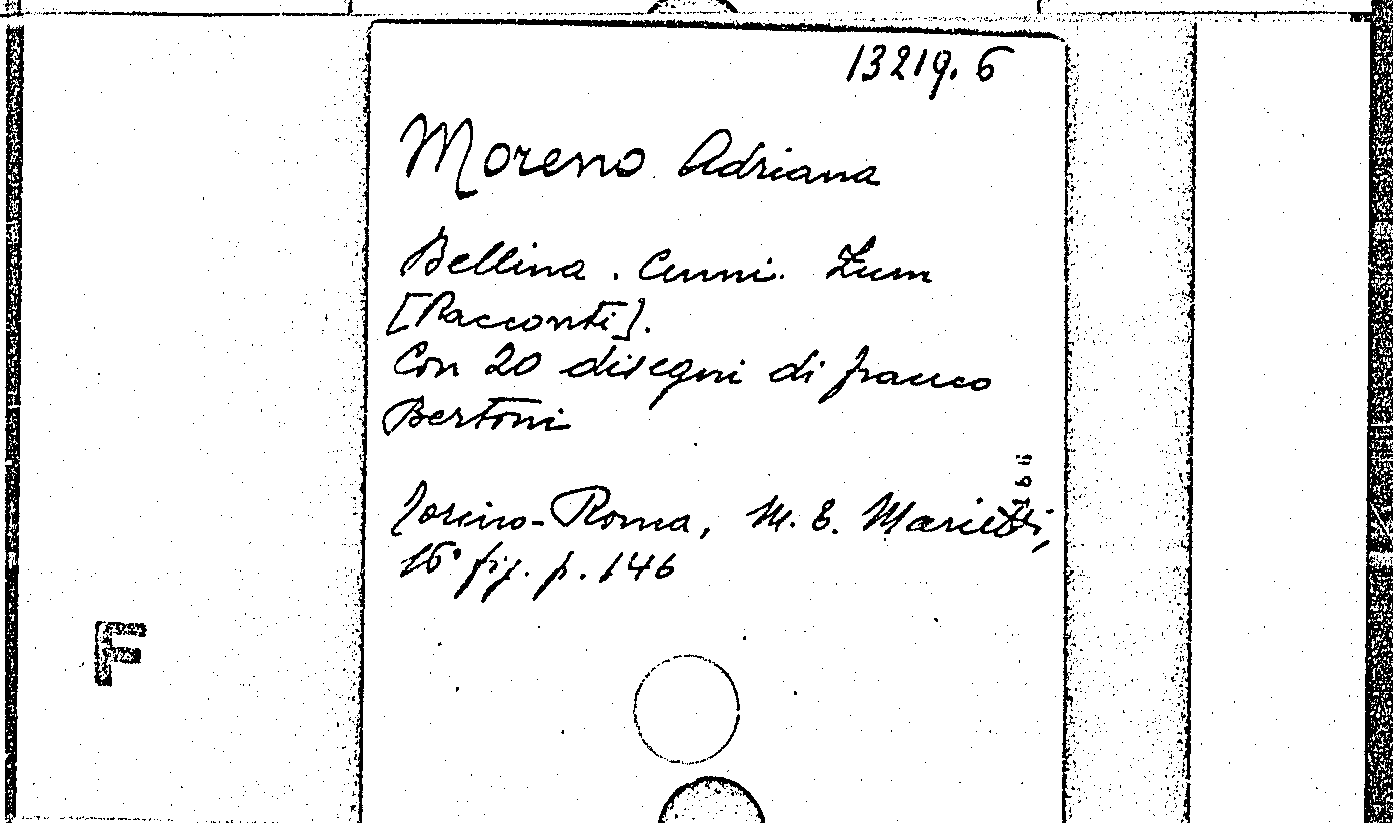 13219.6
Moreno Adriana
Bellina. Cunni. Zum
[Racconti].
Con 20 disegni di franco
Bertoni
Torino-Roma, M. E. Marietti,
16° fig. p. 146
F